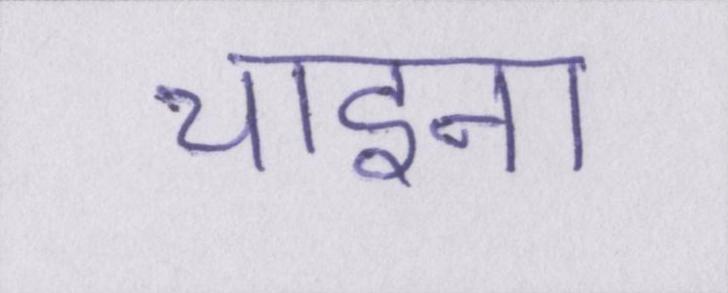 चाइना